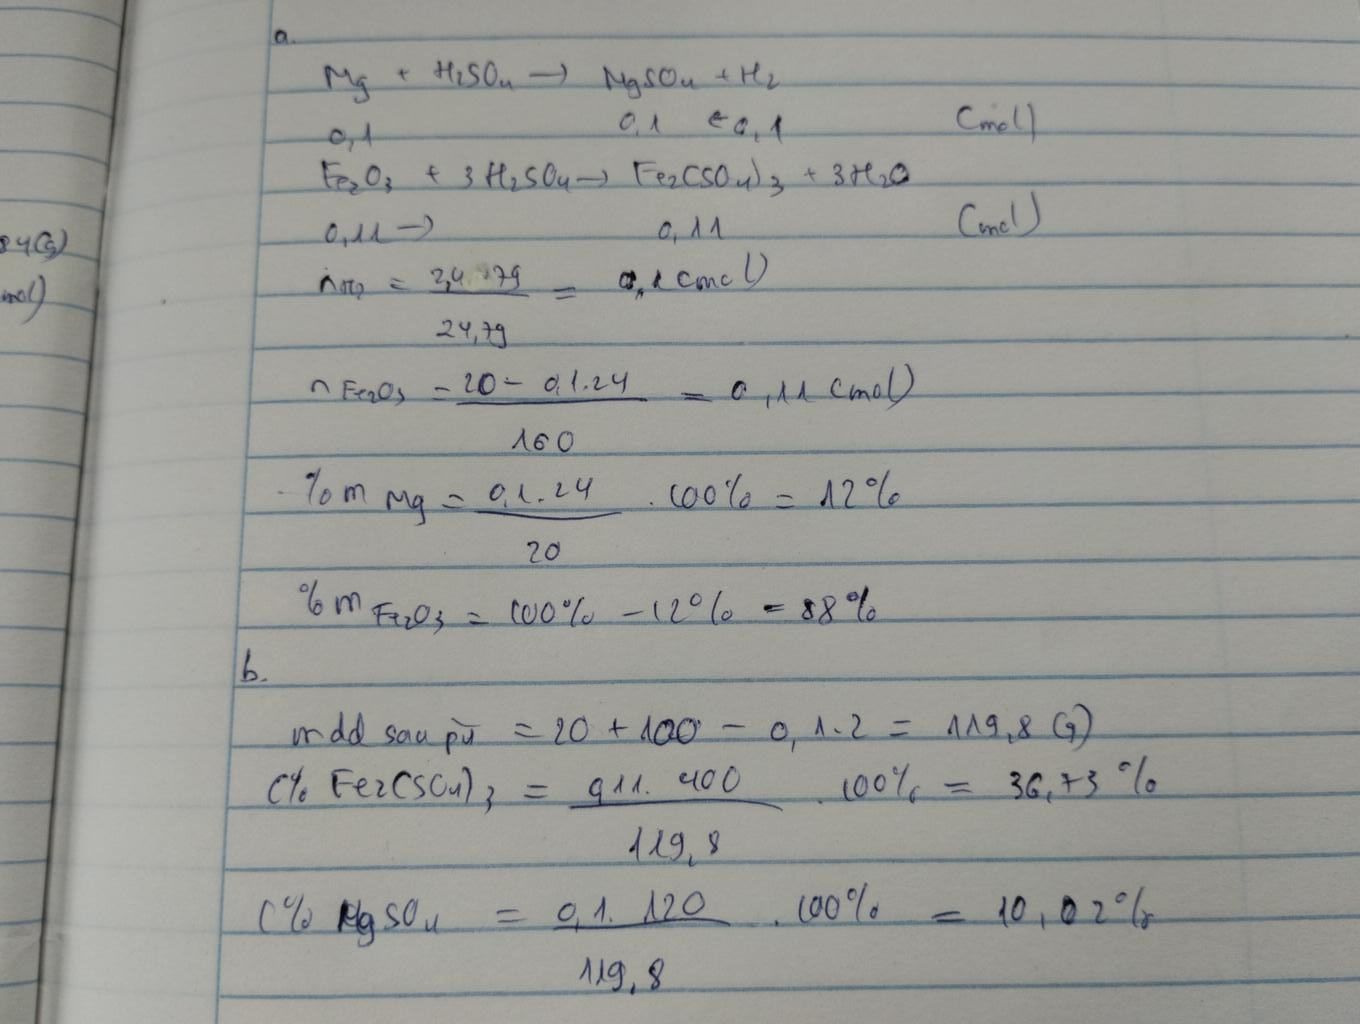 84(g)
mol)
a.
Mg + H2SO4 → MgSO4 + H2
0,1 0,1 ← 0,1 (mol)
Fe2O3 + 3H2SO4 → Fe2(SO4)3 + 3H2O
0,11 → 0,11 (mol)
nH2 = 2,479 / 24,79 = 0,1 (mol)
n Fe2O3 = 20 - 0,1.24 / 160 = 0,11 (mol)
%m Mg = 0,1.24 / 20 . 100% = 12%
%m Fe2O3 = 100% - 12% = 88%
b.
mdd sau pứ = 20 + 100 - 0,1.2 = 119,8 (g)
C% Fe2(SO4)3 = 0,11.400 / 119,8 . 100% = 36,73%
C% MgSO4 = 0,1.120 / 119,8 . 100% = 10,02%